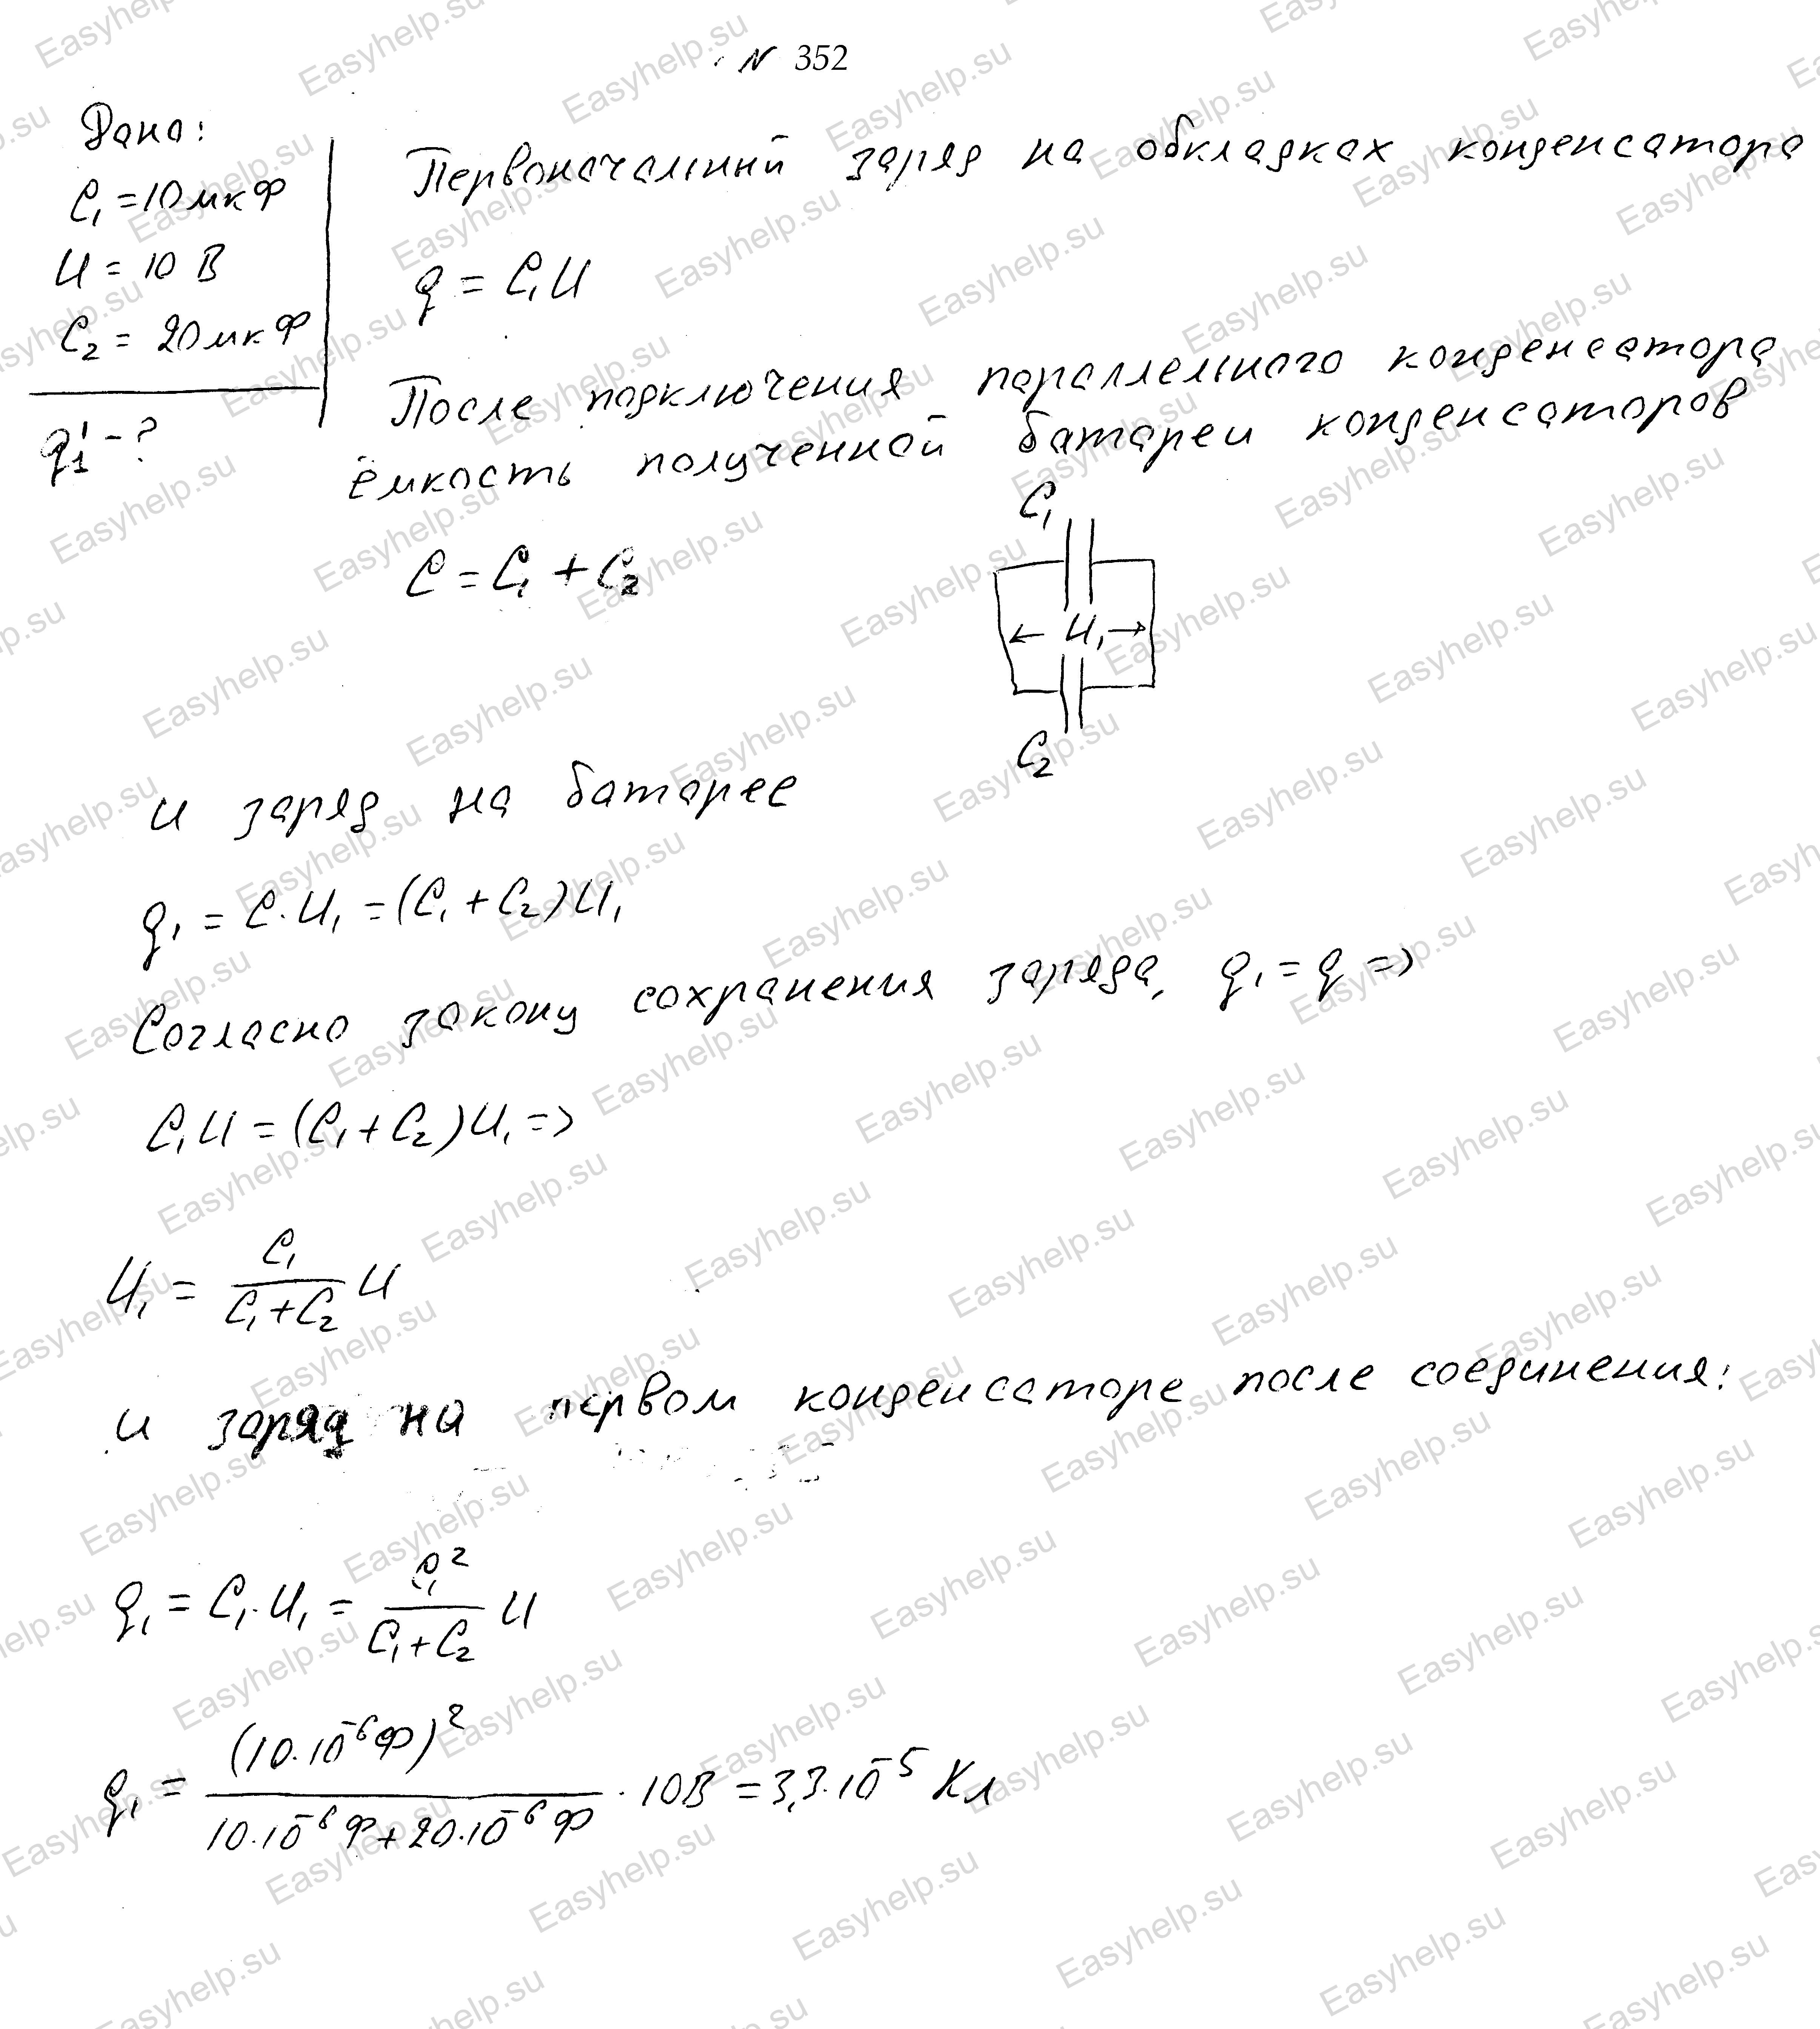 N 352
Дано:
C₁ = 10 мкФ
U = 10 В
C₂ = 20 мкФ
q₁' - ?
Первоначальный заряд на обкладках конденсатора
q = C₁U
После подключения параллельного конденсатора
ёмкость полученной батареи конденсаторов
C = C₁ + C₂
C₁
← U₁ →
C₂
и заряд на батарее
q₁ = C·U₁ = (C₁ + C₂)U₁
Согласно закону сохранения заряда, q₁ = q =>
C₁U = (C₁ + C₂)U₁ =>
U₁ = C₁/(C₁ + C₂) U
и заряд на первом конденсаторе после соединения:
q₁ = C₁·U₁ = C₁²/(C₁ + C₂) U
q₁ = (10·10⁻⁶Ф)²/(10·10⁻⁶Ф + 20·10⁻⁶Ф) · 10В = 3,3·10⁻⁵ Кл
Easyhelp.su